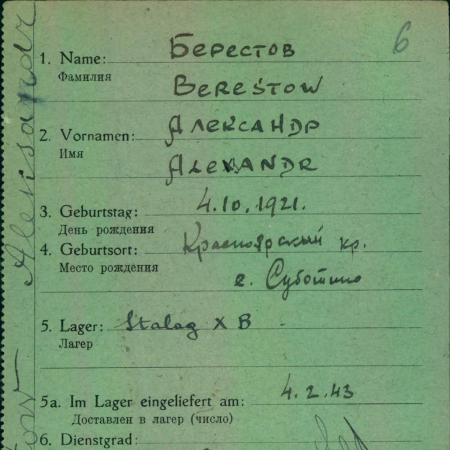 6
Берестов
1. Name:
Фамилия
Bereśtow
Александр
2. Vornamen:
Имя
Alexandr
3. Geburtstag: 4.10.1921.
День рождения
4. Geburtsort: Красноярский кр.
Место рождения
с. Суботино
5. Lager: Stalag X B
Лагер
5a. Im Lager eingeliefert am: 4.2.43
Доставлен в лагер (число)
6. Dienstgrad: